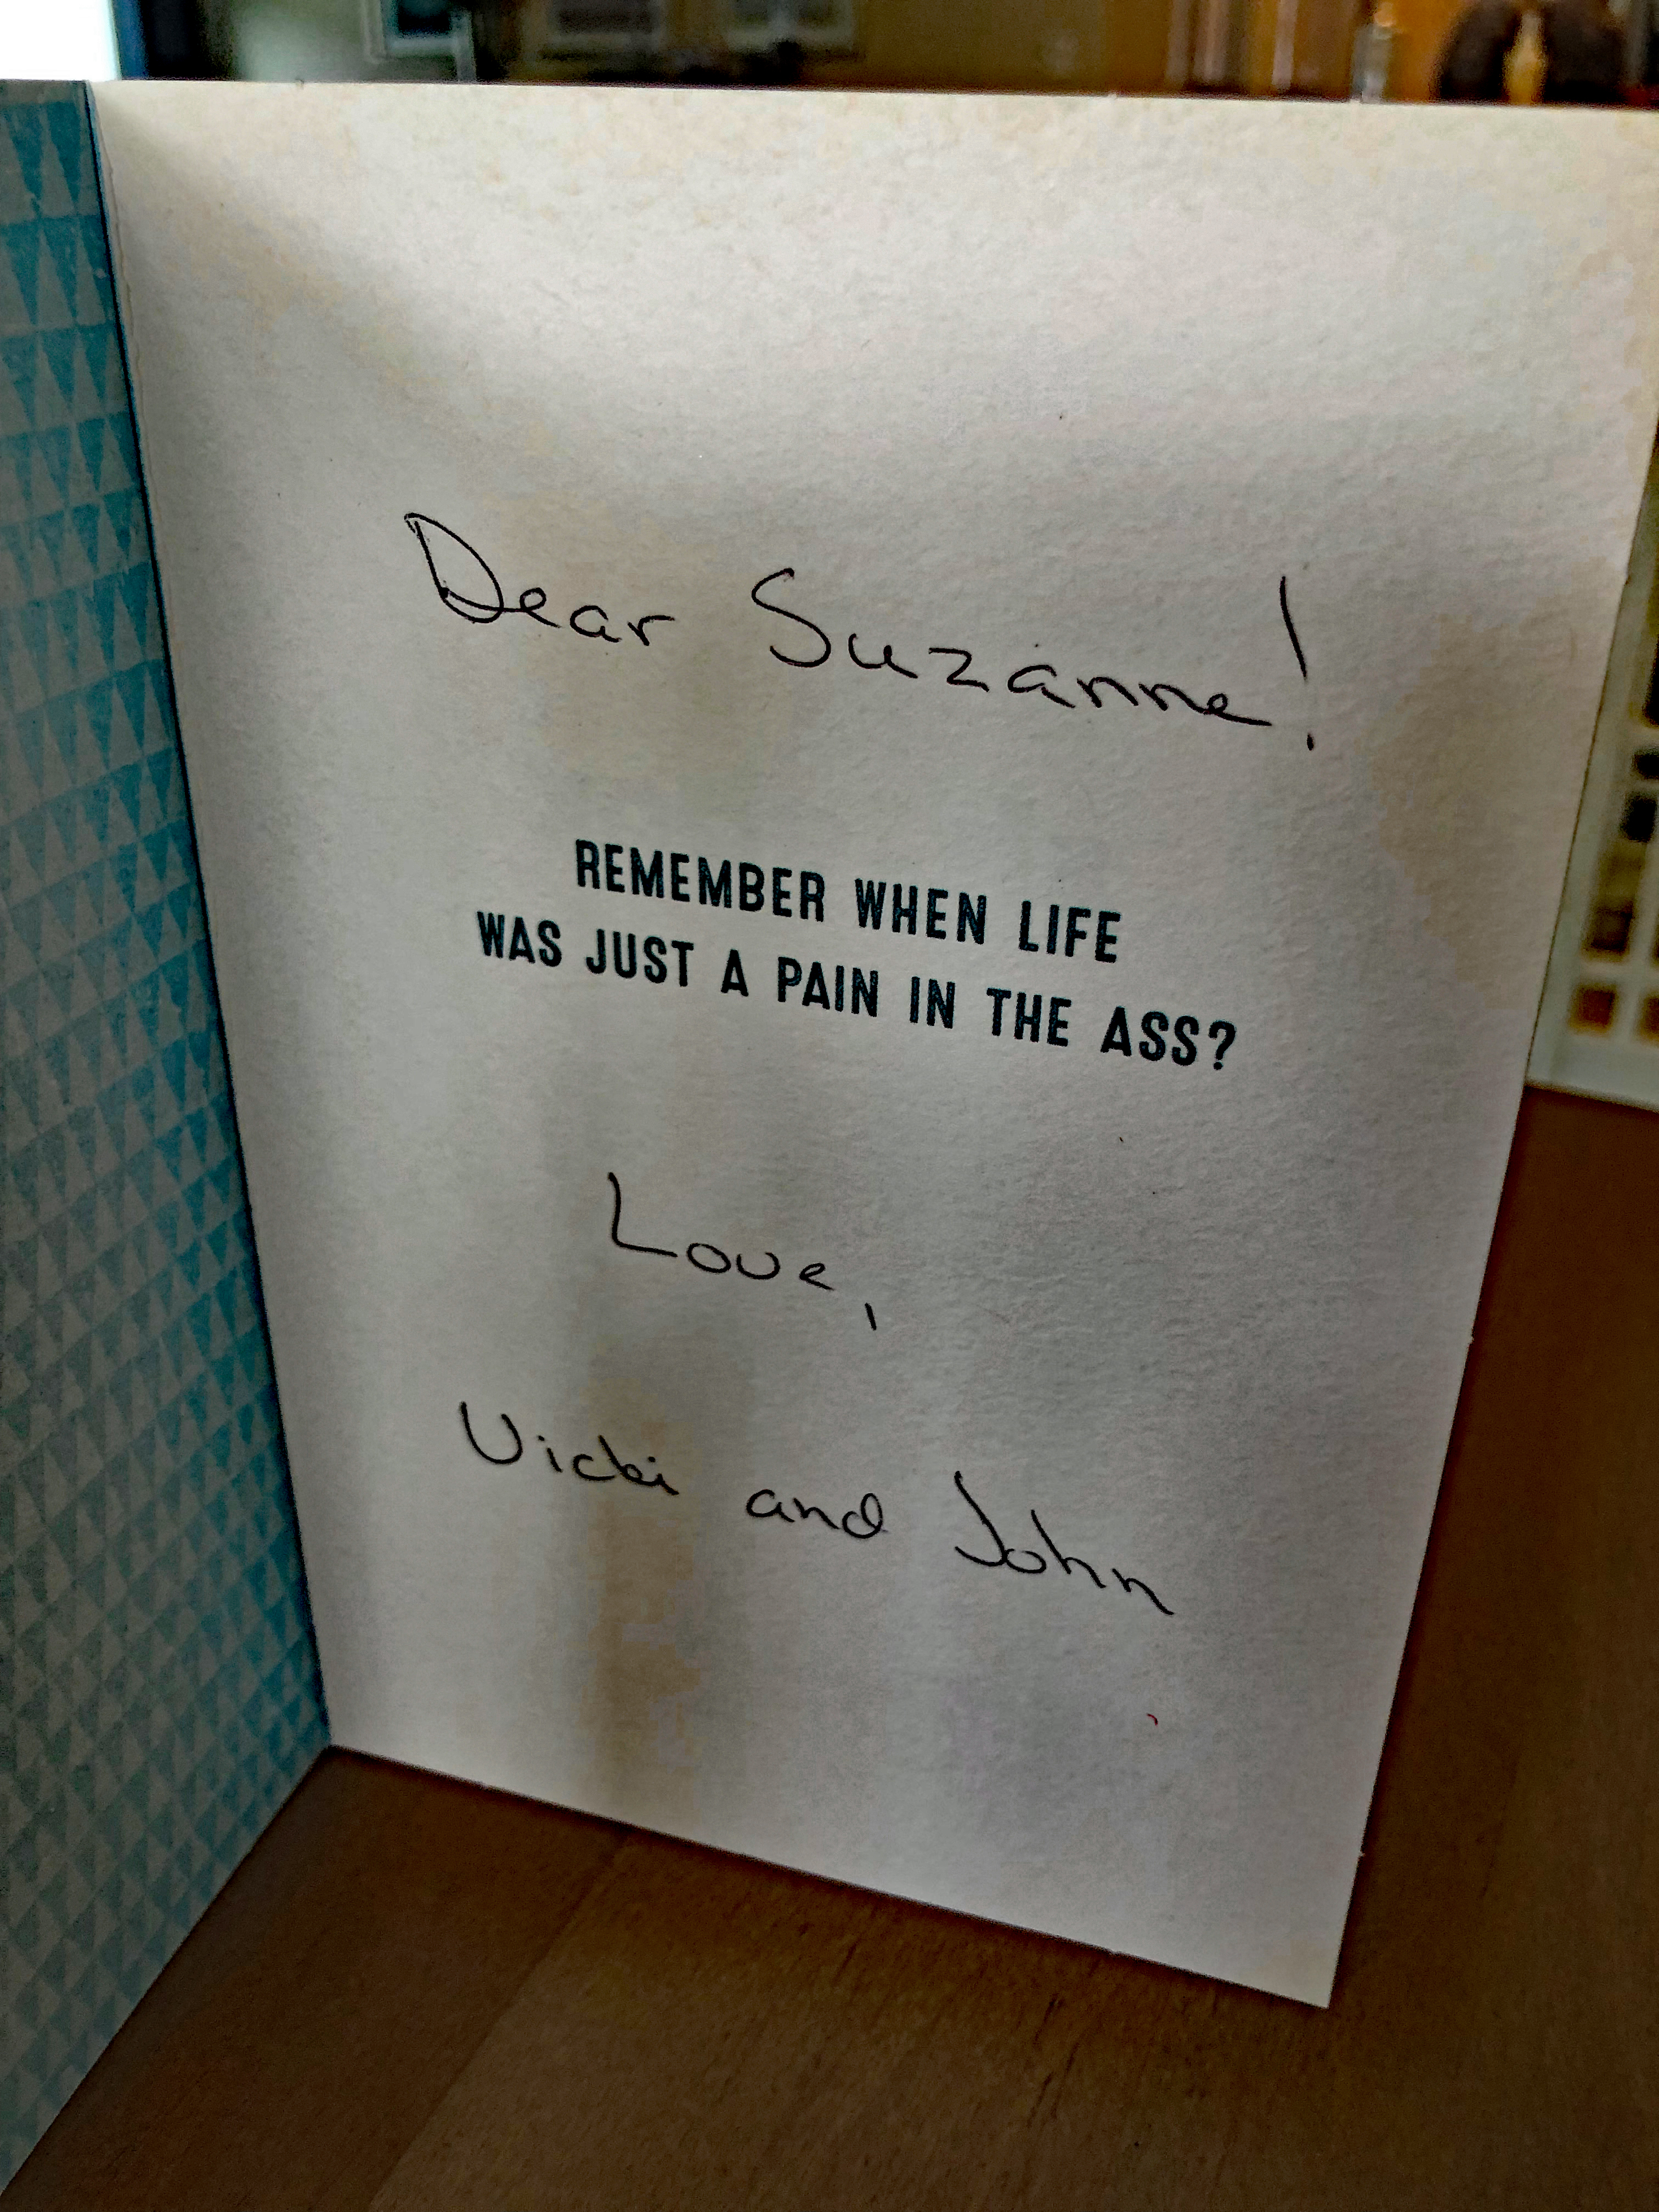 Dear Suzanne!
REMEMBER WHEN LIFE
WAS JUST A PAIN IN THE ASS?
Love,
Vicki and John